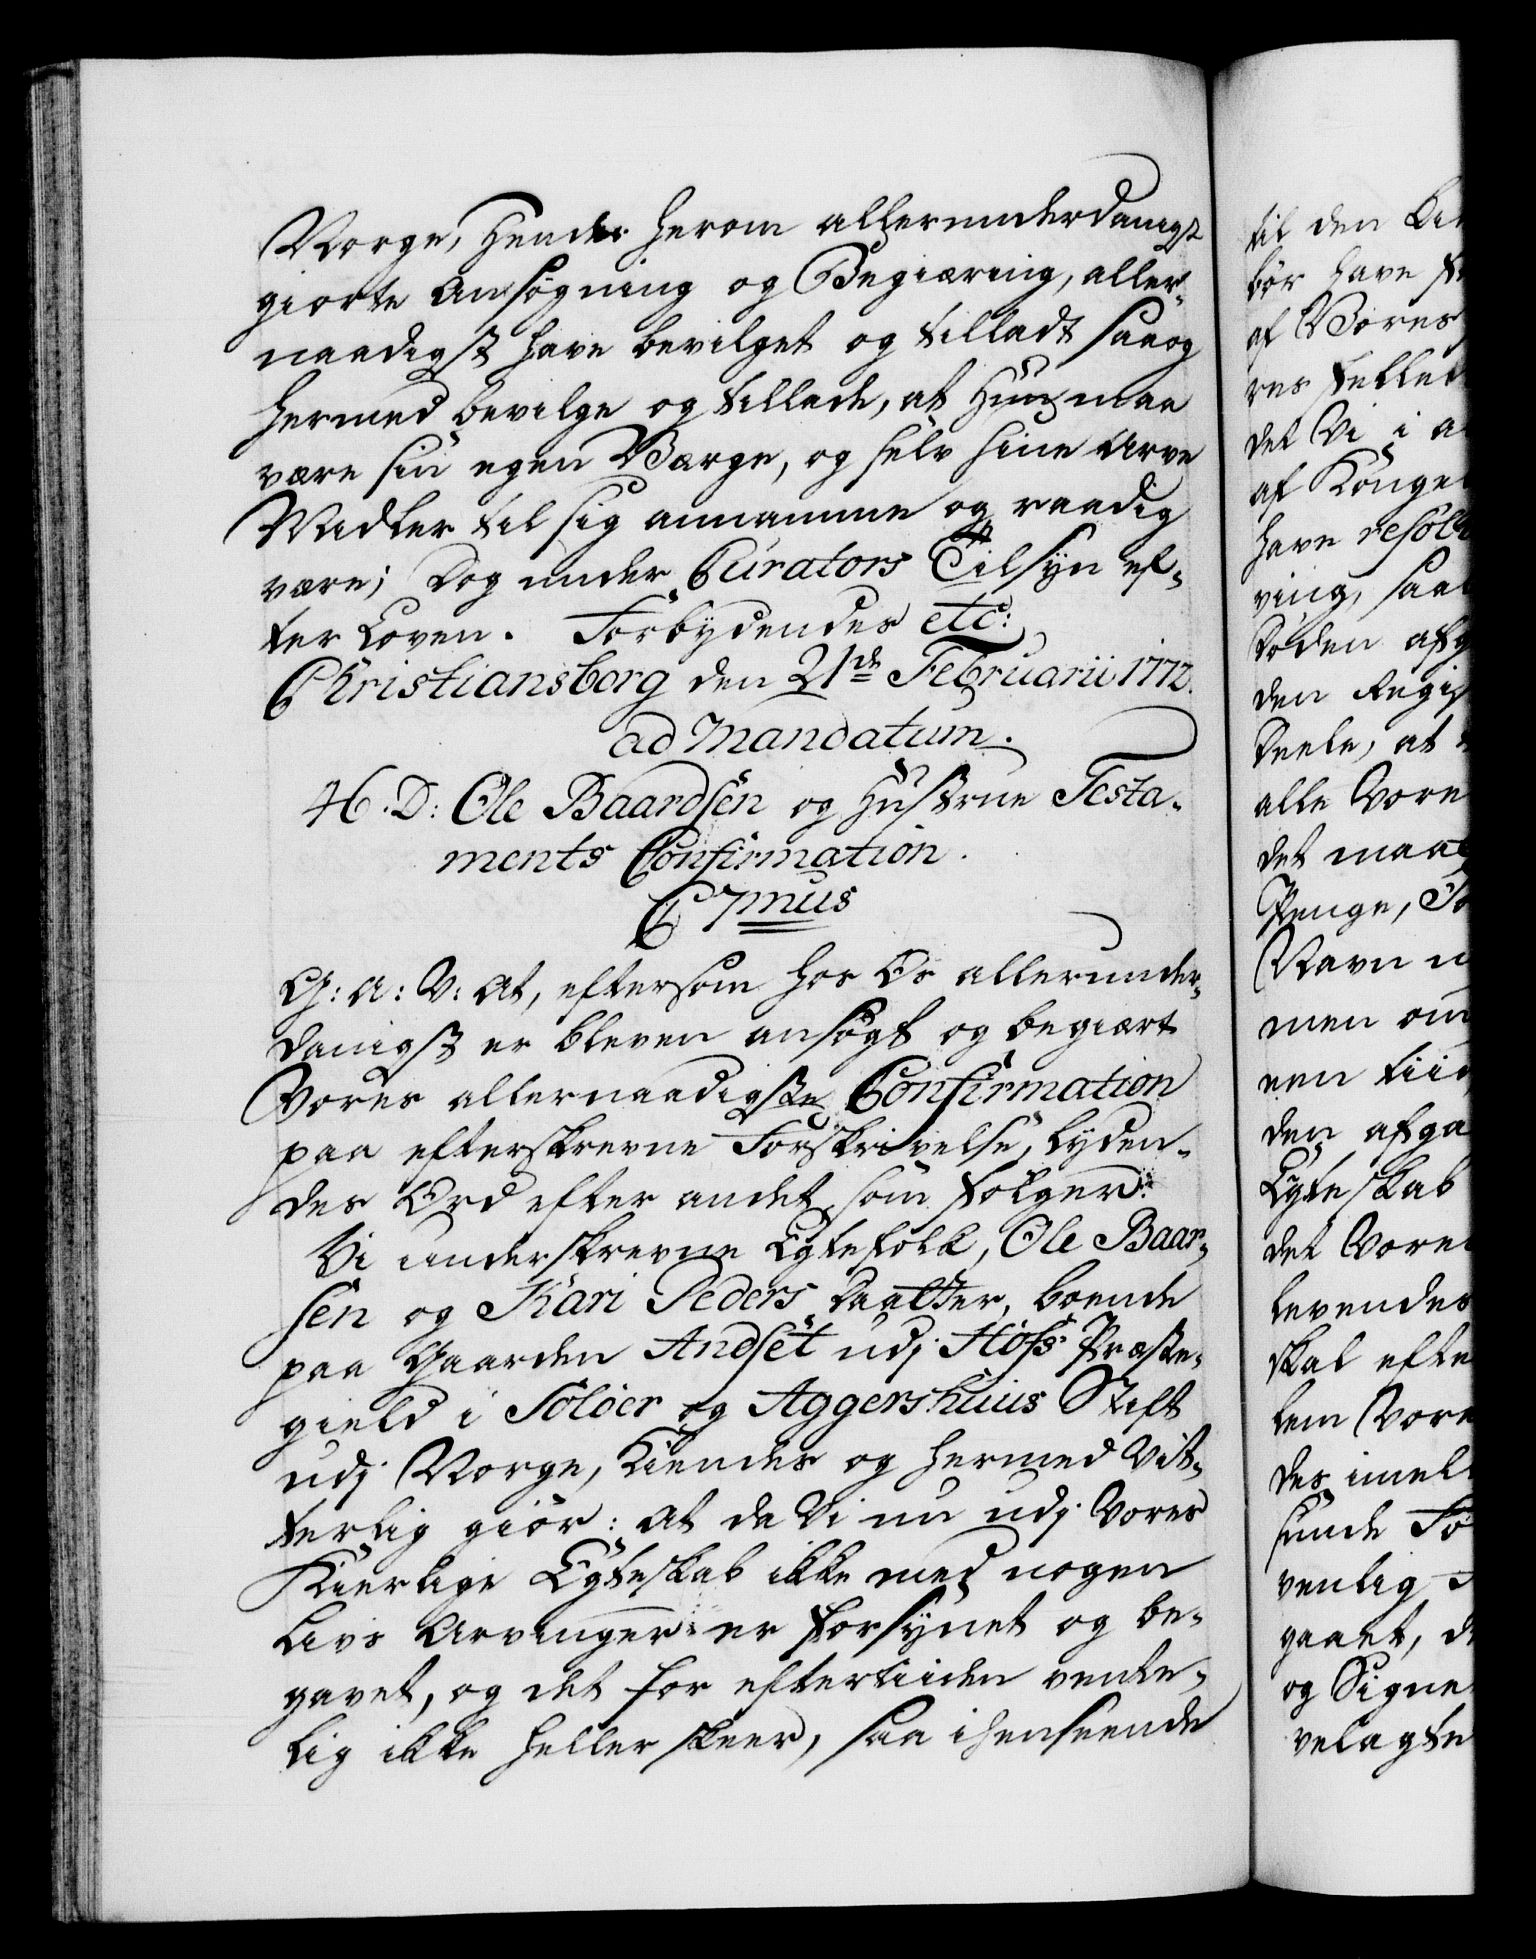 Norge, Hendes herom allerunderdanigst
giorte Ansøgning og Begiæring, aller-
naadigst have bevilget og tilladt saa og
hermed bevilge og tillade, at Hun maa
være sin egen Værge, og selv sine Arve
Midler til sig annamme og raadig
være; Dog under Curators Tilsyn ef-
ter Loven. Forbydendes etc:
Christiansborg den 21de Februarii 1772.
ad Mandatum.
H. D: Ole Baardsen og Hustrue Testa-
ments Confirmation.
C 7mus
G: A: V: At, eftersom hos Os allerunder-
danigst er bleven ansøgt og begiært
Vores allernaadigste Confirmation
paa efterskrevne Forskrivelse, lyden-
des Ord efter andet som følger:
Vi underskrevne Egtefolk, Ole Baar-
sen og Kari Peders Daatter, boende
paa Gaarden Andset udj Hofs Præste-
gield i Soløer og Aggershuus Stift
udj Norge, Kiendes og hermed Vit-
terlig giør: At da Vi nu udj Vores
Kierlige Egteskab ikke med nogen
Livs Arvinger er forsynet og be-
gavet, og det for eftertiiden vente-
lig ikke heller skeer, saa i henseende
til den
bør have
af Vores
res
det Vi i
af
have
ving,
Døden
den
Deele, at
alle Vore
det
Penge,
Navn
men om
een tiid
den
Egteskab
det Vore
levendes
skal efte
lem Vore
des imel
sunde
venlig
gaaet,
og Signe
velagte